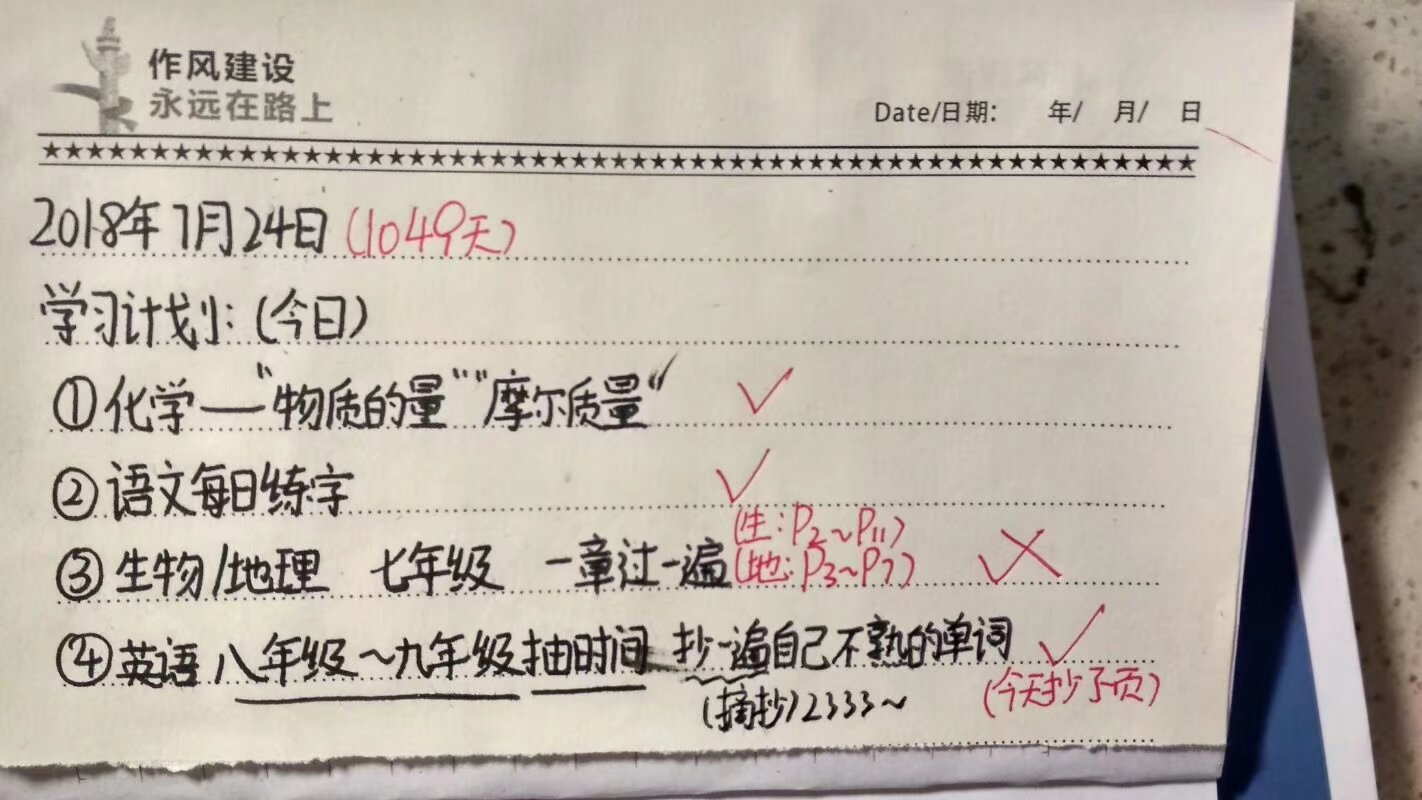 作风建设
永远在路上
Date/日期: 年/ 月/ 日
★★★★★★★★★★★★★★★★★★★★★★★★★★★★★★★★★★★★★★★★★★★★★★★★★★★★★
2018年7月24日(1049天)
学习计划:(今日)
①化学——“物质的量”“摩尔质量” ✓
②语文每日练字 ✓
(生:P2~P11)
③生物/地理 七年级 一章过一遍(地:P3~P7) ✓×
④英语八年级~九年级抽时间 抄一遍自己不熟的单词 ✓
(摘抄)2333~ (今天抄了一页)